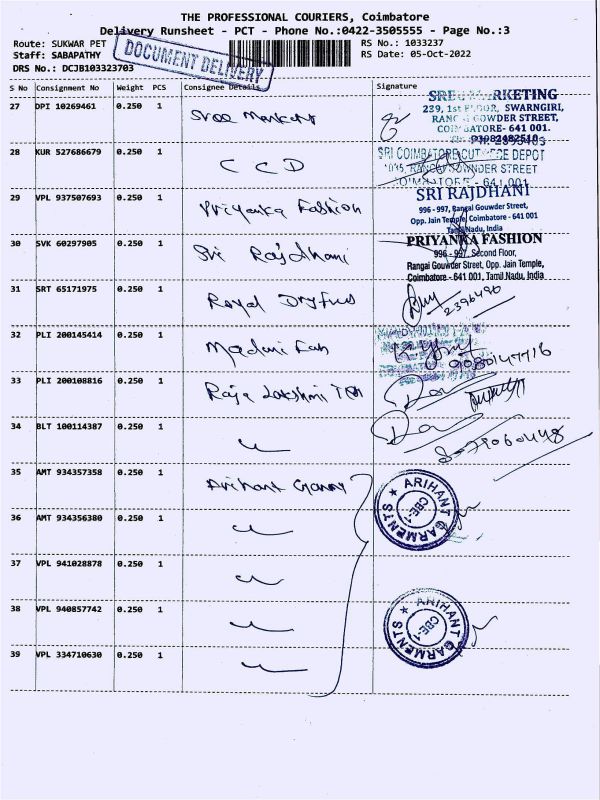 THE PROFESSIONAL COURIERS, Coimbatore
Delivery Runsheet - PCT - Phone No.:0422-3505555 - Page No.:3
Route: SUKWAR PET
RS No.: 1033237
Staff: SABAPATHY
RS Date: 05-Oct-2022
DRS No.: DCJB103323703
DOCUMENT DELIVERY
S No Consignment No Weight PCS Consignee Details Signature
27 DPI 10269461 0.250 1
239, 1st FLOOR, SWARNGIRI,
GOWDER STREET,
COIMBATORE- 641 001.
28 KUR 527686679 0.250 1 CCD
SRI COIMBATORE CUT PIECE DEPOT
STREET
29 VPL 937507693 0.250 1 Priyanka Fashion
SRI RAJDHANI
996 - 997, Rangai Gouwder Street,
Opp. Jain Temple, Coimbatore - 641 001
Tamil Nadu, India
30 SVK 60297905 0.250 1 Sri Rajdhani
PRIYANKA FASHION
996 - 997, Second Floor,
Rangai Gouwder Street, Opp. Jain Temple,
Coimbatore - 641 001, Tamil Nadu, India
31 SRT 65171975 0.250 1 Royal
32 PLI 200145414 0.250 1
33 PLI 200108816 0.250 1 Raja Lakshmi
34 BLT 100114387 0.250 1
35 AMT 934357358 0.250 1 Arihant
ARIHANT GARMENTS
CBE-1
36 AMT 934356380 0.250 1
37 VPL 941028878 0.250 1
38 VPL 940857742 0.250 1
ARIHANT GARMENTS
CBE-1
39 VPL 334710630 0.250 1